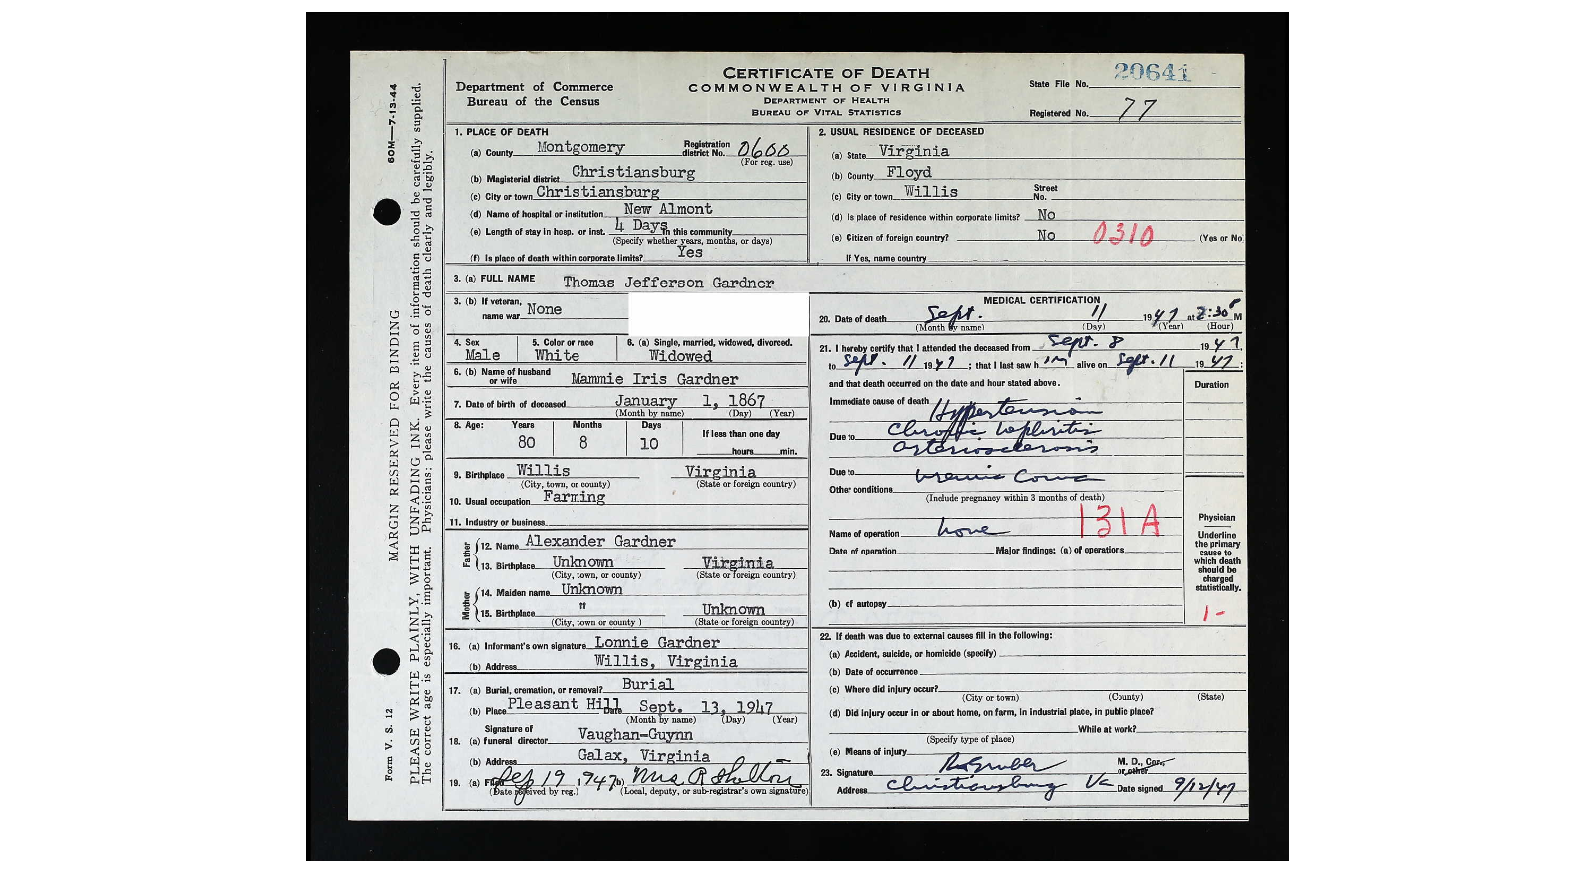 CERTIFICATE OF DEATH
COMMONWEALTH OF VIRGINIA
DEPARTMENT OF HEALTH
BUREAU OF VITAL STATISTICS
Department of Commerce
Bureau of the Census
State File No. 20641 -
Registered No. 77
60M—7-13-44
MARGIN RESERVED FOR BINDING
PLEASE WRITE PLAINLY, WITH UNFADING INK. Every item of information should be carefully supplied.
The correct age is especially important. Physicians: please write the causes of death clearly and legibly.
Form V. S. 12
1. PLACE OF DEATH
(a) County Montgomery Registration district No. 0600
(For reg. use)
(b) Magisterial district Christiansburg
(c) City or town Christiansburg
(d) Name of hospital or institution New Almont
(e) Length of stay in hosp. or inst. 4 Days In this community
(Specify whether years, months, or days)
(f) Is place of death within corporate limits? Yes
2. USUAL RESIDENCE OF DECEASED
(a) State Virginia
(b) County Floyd
(c) City or town Willis Street No.
(d) Is place of residence within corporate limits? No
(e) Citizen of foreign country? No 0310 (Yes or No
If Yes, name country
3. (a) FULL NAME Thomas Jefferson Gardner
3. (b) If veteran, name war None
4. Sex Male
5. Color or race White
6. (a) Single, married, widowed, divorced. Widowed
6. (b) Name of husband or wife Mammie Iris Gardner
7. Date of birth of deceased January 1, 1867
(Month by name) (Day) (Year)
8. Age: Years Months Days If less than one day
80 8 10 hours min.
9. Birthplace Willis Virginia
(City, town, or county) (State or foreign country)
10. Usual occupation Farming
11. Industry or business
Father
12. Name Alexander Gardner
13. Birthplace Unknown Virginia
(City, town, or county) (State or foreign country)
Mother
14. Maiden name Unknown
15. Birthplace " Unknown
(City, town or county ) (State or foreign country)
16. (a) Informant's own signature Lonnie Gardner
(b) Address Willis, Virginia
17. (a) Burial, cremation, or removal? Burial
(b) Place Pleasant Hill Date Sept. 13, 1947
(Month by name) (Day) (Year)
18. (a) Signature of funeral director Vaughan-Guynn
(b) Address Galax, Virginia
19. (a) Filed Sep 19 1947 (b) Mrs R Shelton
(Date received by reg.) (Local, deputy, or sub-registrar's own signature)
MEDICAL CERTIFICATION
20. Date of death Sept. 11 1947 at 2:30 P M
(Month by name) (Day) (Year) (Hour)
21. I hereby certify that I attended the deceased from Sept. 8 1947,
to Sept. 11 1947; that I last saw him alive on Sept. 11 1947;
and that death occurred on the date and hour stated above.
Duration
Immediate cause of death Hypertension
Due to Chronic Nephritis
Arteriosclerosis
Due to Uremic Coma
Other conditions
(Include pregnancy within 3 months of death)
131A
Name of operation none
Date of operation Major findings: (a) of operations
(b) of autopsy
Physician
Underline the primary cause to which death should be charged statistically.
1-
22. If death was due to external causes fill in the following:
(a) Accident, suicide, or homicide (specify)
(b) Date of occurrence
(c) Where did injury occur?
(City or town) (County) (State)
(d) Did injury occur in or about home, on farm, in industrial place, in public place?
While at work?
(Specify type of place)
(e) Means of injury
23. Signature M. D., Cor., or other
Address Christiansburg Va Date signed 9/12/47